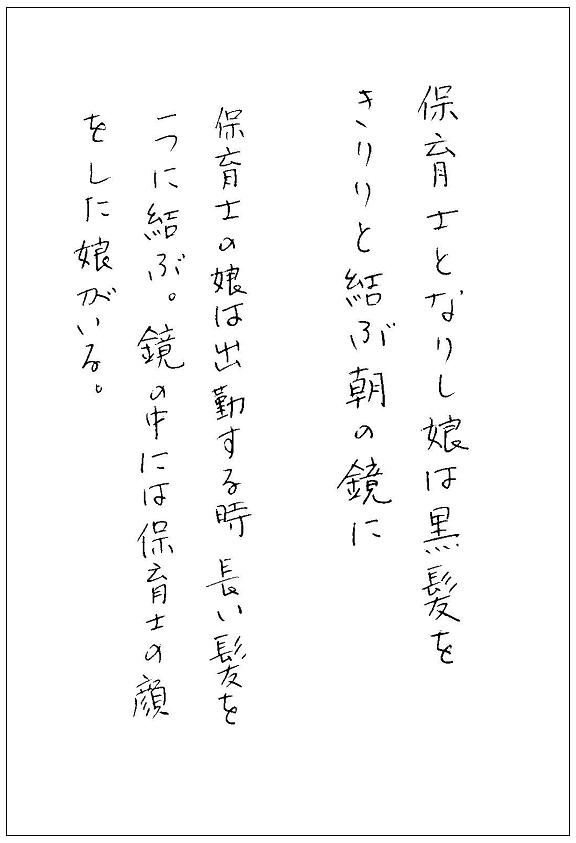 保育士となりし娘は黒髪を
きりりと結ぶ朝の鏡に
保育士の娘は出勤する時長い髪を
一つに結ぶ。鏡の中には保育士の顔
をした娘がいる。